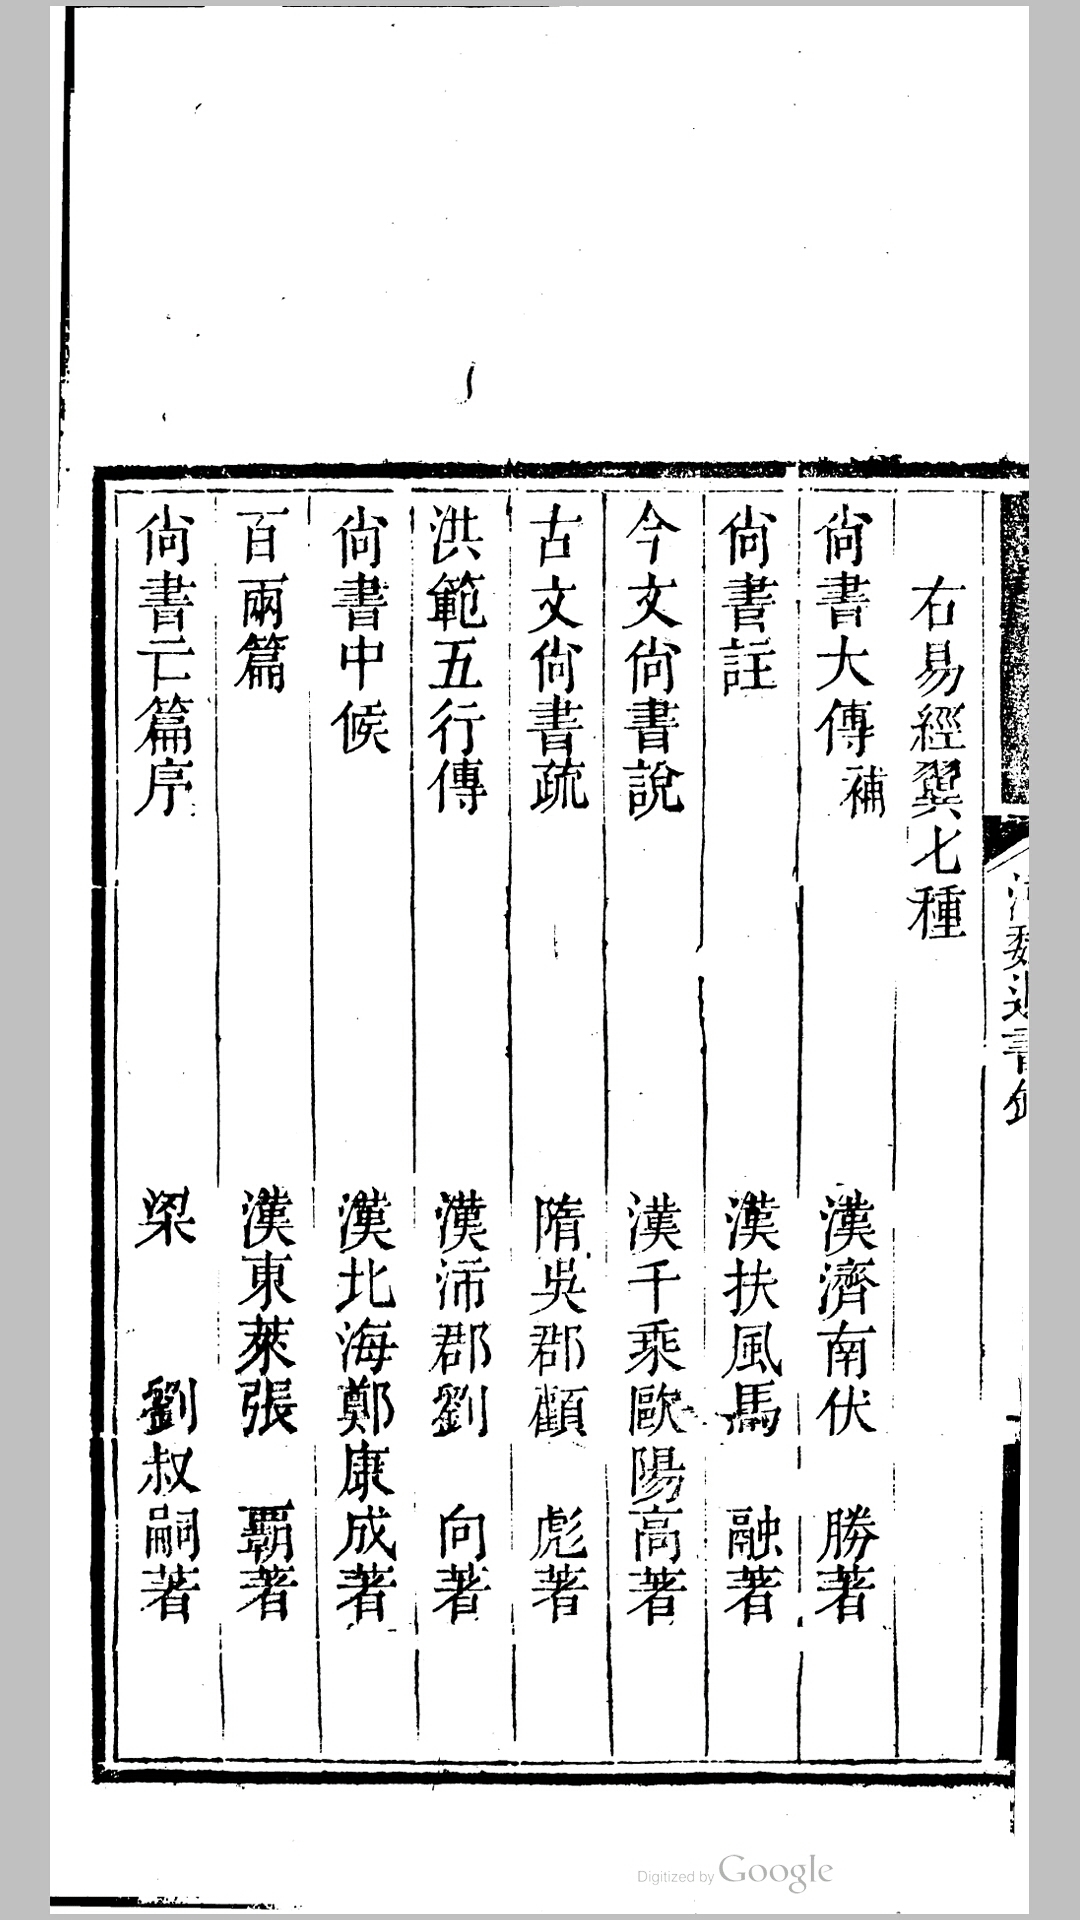 右易經翼七種
尙書大傳補 漢濟南伏 勝著
尙書註 漢扶風馬 融著
今文尙書說 漢千乘歐陽高著
古文尙書疏 隋吳郡顧 彪著
洪範五行傳 漢沛郡劉 向著
尙書中候 漢北海鄭康成著
百兩篇 漢東萊張 霸著
尙書亡篇序 梁 劉叔嗣著
Digitized by Google